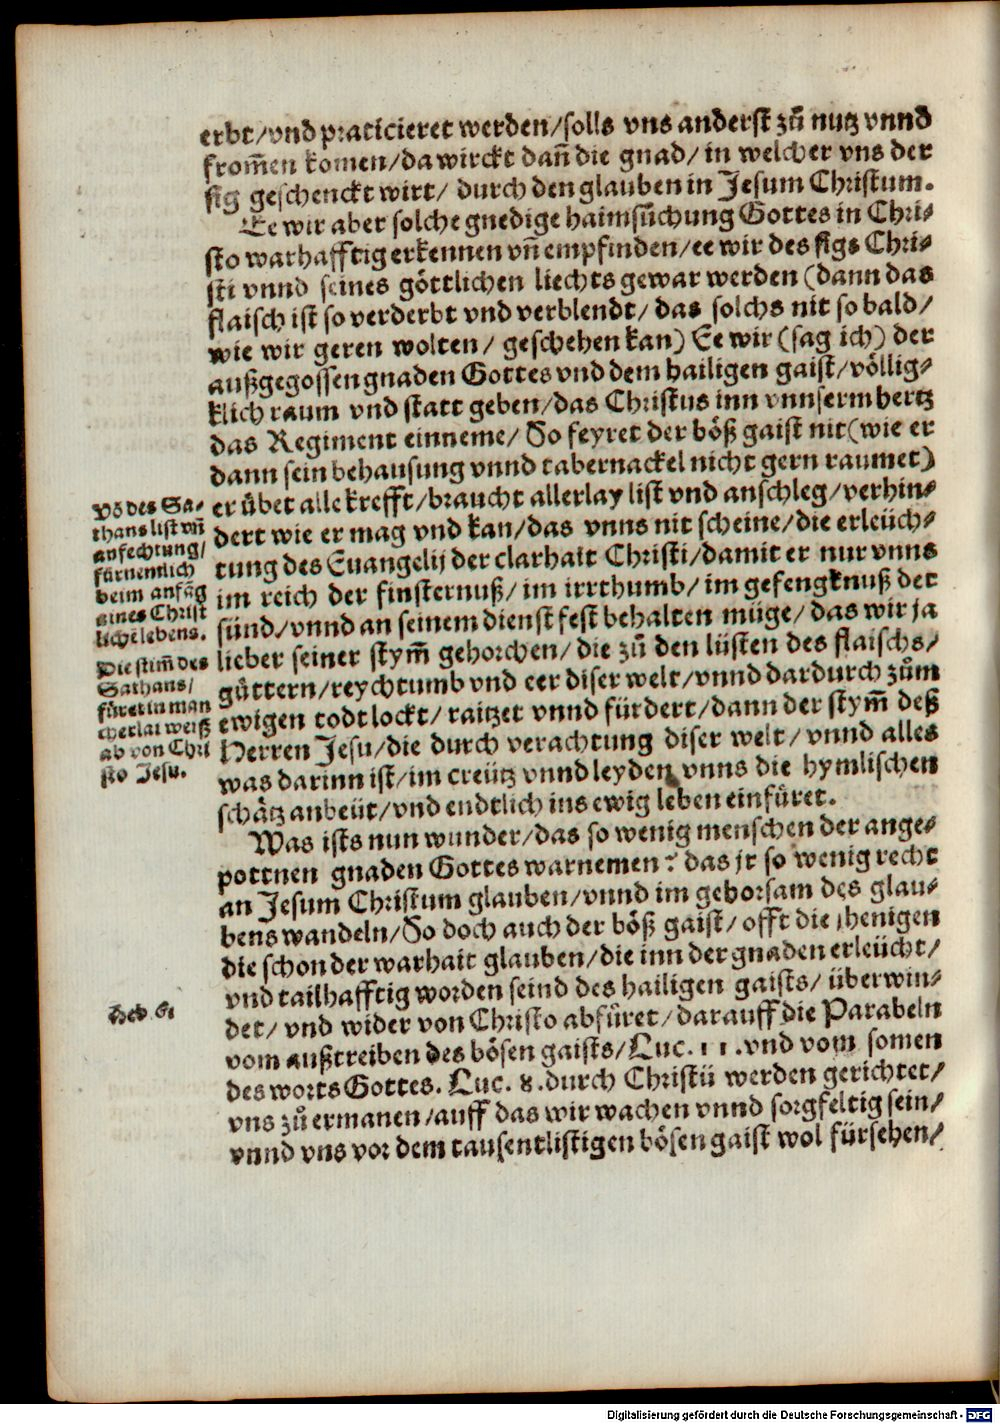 erbt/vnd practicieret werden/solls vns anderst zů nutz vnnd
from̃en komen/da wirckt dañ die gnad/in welcher vns der
sig geschenckt wirt/durch den glauben in Jesum Christum.
Ee wir aber solche gnedige haimsůchung Gottes in Chri-
sto warhafftig erkennen vñ empfinden/ee wir des sigs Chri-
sti vnnd seines göttlichen liechts gewar werden (dann das
flaisch ist so verderbt vnd verblendt/das solchs nit so bald/
wie wir geren wolten/geschehen kan) Ee wir (sag ich) der
außgegossen gnaden Gottes vnd dem hailigen gaist/völlig-
klich raum vnd statt geben/das Christus inn vnnserm hertz
das Regiment einneme/So feyret der böß gaist nit (wie er
dann sein behausung vnnd tabernackel nicht gern raumet)
er übet alle krefft/braucht allerlay list vnd anschleg/verhin-
dert wie er mag vnd kan/das vnns nit scheine/die erleüch-
tung des Euangelij der clarhait Christi/damit er nur vnns
im reich der finsternuß/im irrthumb/im gefengknuß der
sünd/vnnd an seinem dienst fest behalten müge/das wir ja
lieber seiner stym̃ gehorchen/die zů den lüsten des flaischs/
güttern/reychtumb vnd eer diser welt/vnnd dardurch zům
ewigen todt lockt/raitzet vnnd fürdert/dann der stym̃ deß
Herren Jesu/die durch verachtung diser welt/vnnd alles
was darinn ist/im creütz vnnd leyden vnns die hymlischen
schätz anbeüt/vnd endtlich ins ewig leben einfüret.
Was ists nun wunder/das so wenig menschen der ange-
pottnen gnaden Gottes warnemen? das jr so wenig recht
an Jesum Christum glauben/vnnd im gehorsam des glau-
bens wandeln/So doch auch der böß gaist/offt die jhenigen
die schon der warhait glauben/die inn der gnaden erleücht/
vnd tailhafftig worden seind des hailigen gaists/überwin-
det/vnd wider von Christo abfüret/darauff die Parabeln
vom außtreiben des bösen gaists/Luc. 11. vnd vom somen
des worts Gottes. Luc. 8. durch Christū werden gerichtet/
vns zů ermanen/auff das wir wachen vnnd sorgfeltig sein/
vnnd vns vor dem tausentlistigen bösen gaist wol fürsehen/
Vō des Sa-
thans list vñ
anfechtung/
fürnemlich
beim anfāg
aines Christ
lichē lebens.
Die stim̃ des
Sathans/
füret in man
cherlai weiß
ab von Chri
sto Jesu.
Heb. 6.
Digitalisierung gefördert durch die Deutsche Forschungsgemeinschaft - DFG